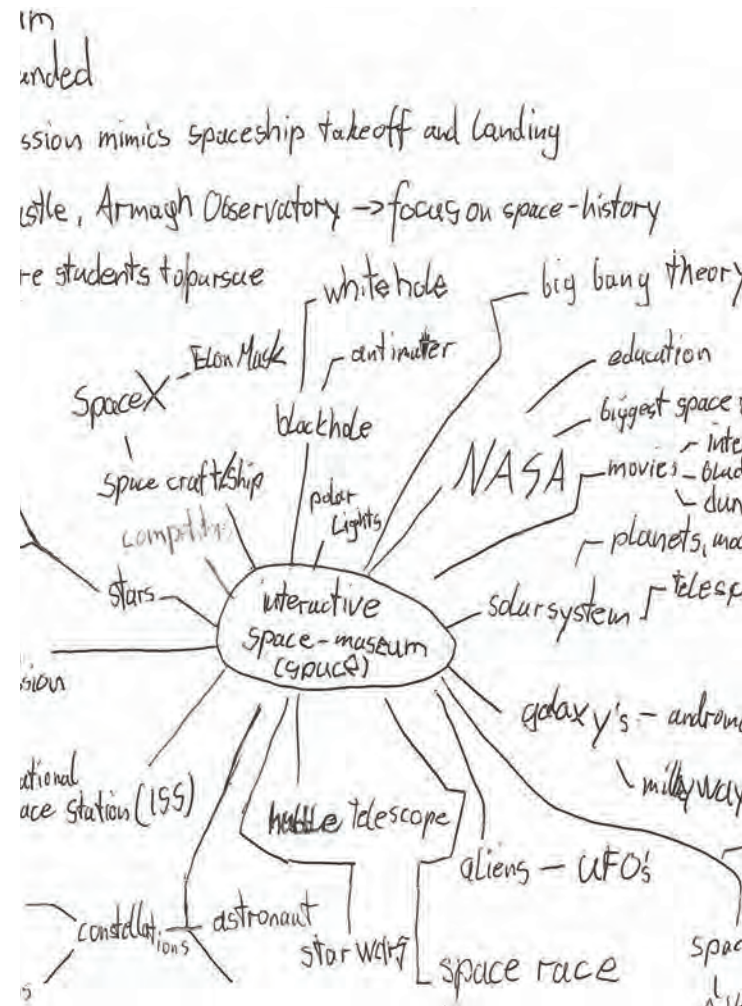 um
unded
ssion mimics spaceship takeoff and landing
stle, Armagh Observatory -> focus on space-history
re students to pursue
white hole
big bang theory
Elon Musk
antimatter
education
SpaceX
biggest space
blackhole
NASA
inte
movies
dun
space craft/ship
polar
Lights
planets, moo
stars
interactive
space-museum
(space)
solarsystem
telesc
sion
galaxy's - androm
milkyway
ational
ace station (ISS)
hubble telescope
aliens - UFO's
constellations
astronaut
star wars
space race
spac
s